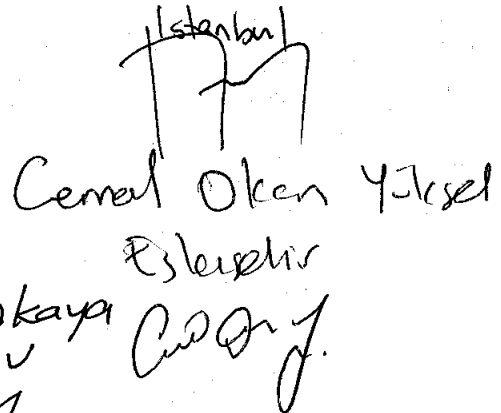 İstanbul
Cemal Okan Yüksel
Eskişehir
kaya